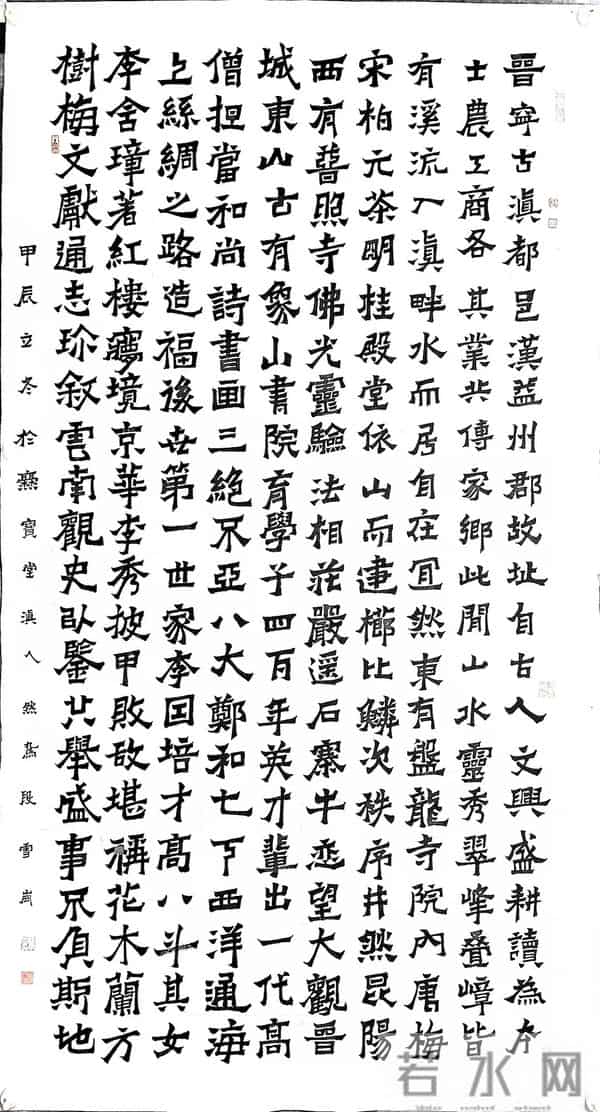 晉寧古滇都邑漢益州郡故址自古人文興盛耕讀為本
士農工商各其業共傳家鄉此間山水靈秀翠峰疊嶂皆
有溪流入滇畔水而居自在宜然東有盤龍寺院內唐梅
宋柏元茶明桂殿堂依山而建櫛比鱗次秩序井然昆陽
西有普照寺佛光靈驗法相莊嚴遥石寨牛恋望大觀晉
城東山古有象山書院育學子四百年英才輩出一代高
僧担當和尚詩書画三絕不亞八大鄭和七下西洋通海
上絲綢之路造福後世第一世家李国培才高八斗其女
李含璋著紅樓夢境京華李秀披甲敗敌堪稱花木蘭方
樹梅文獻通志珎敘雲南觀史臥鑒廿舉盛事不負斯地
甲辰立冬於爨寳堂滇人然段雪
若水网